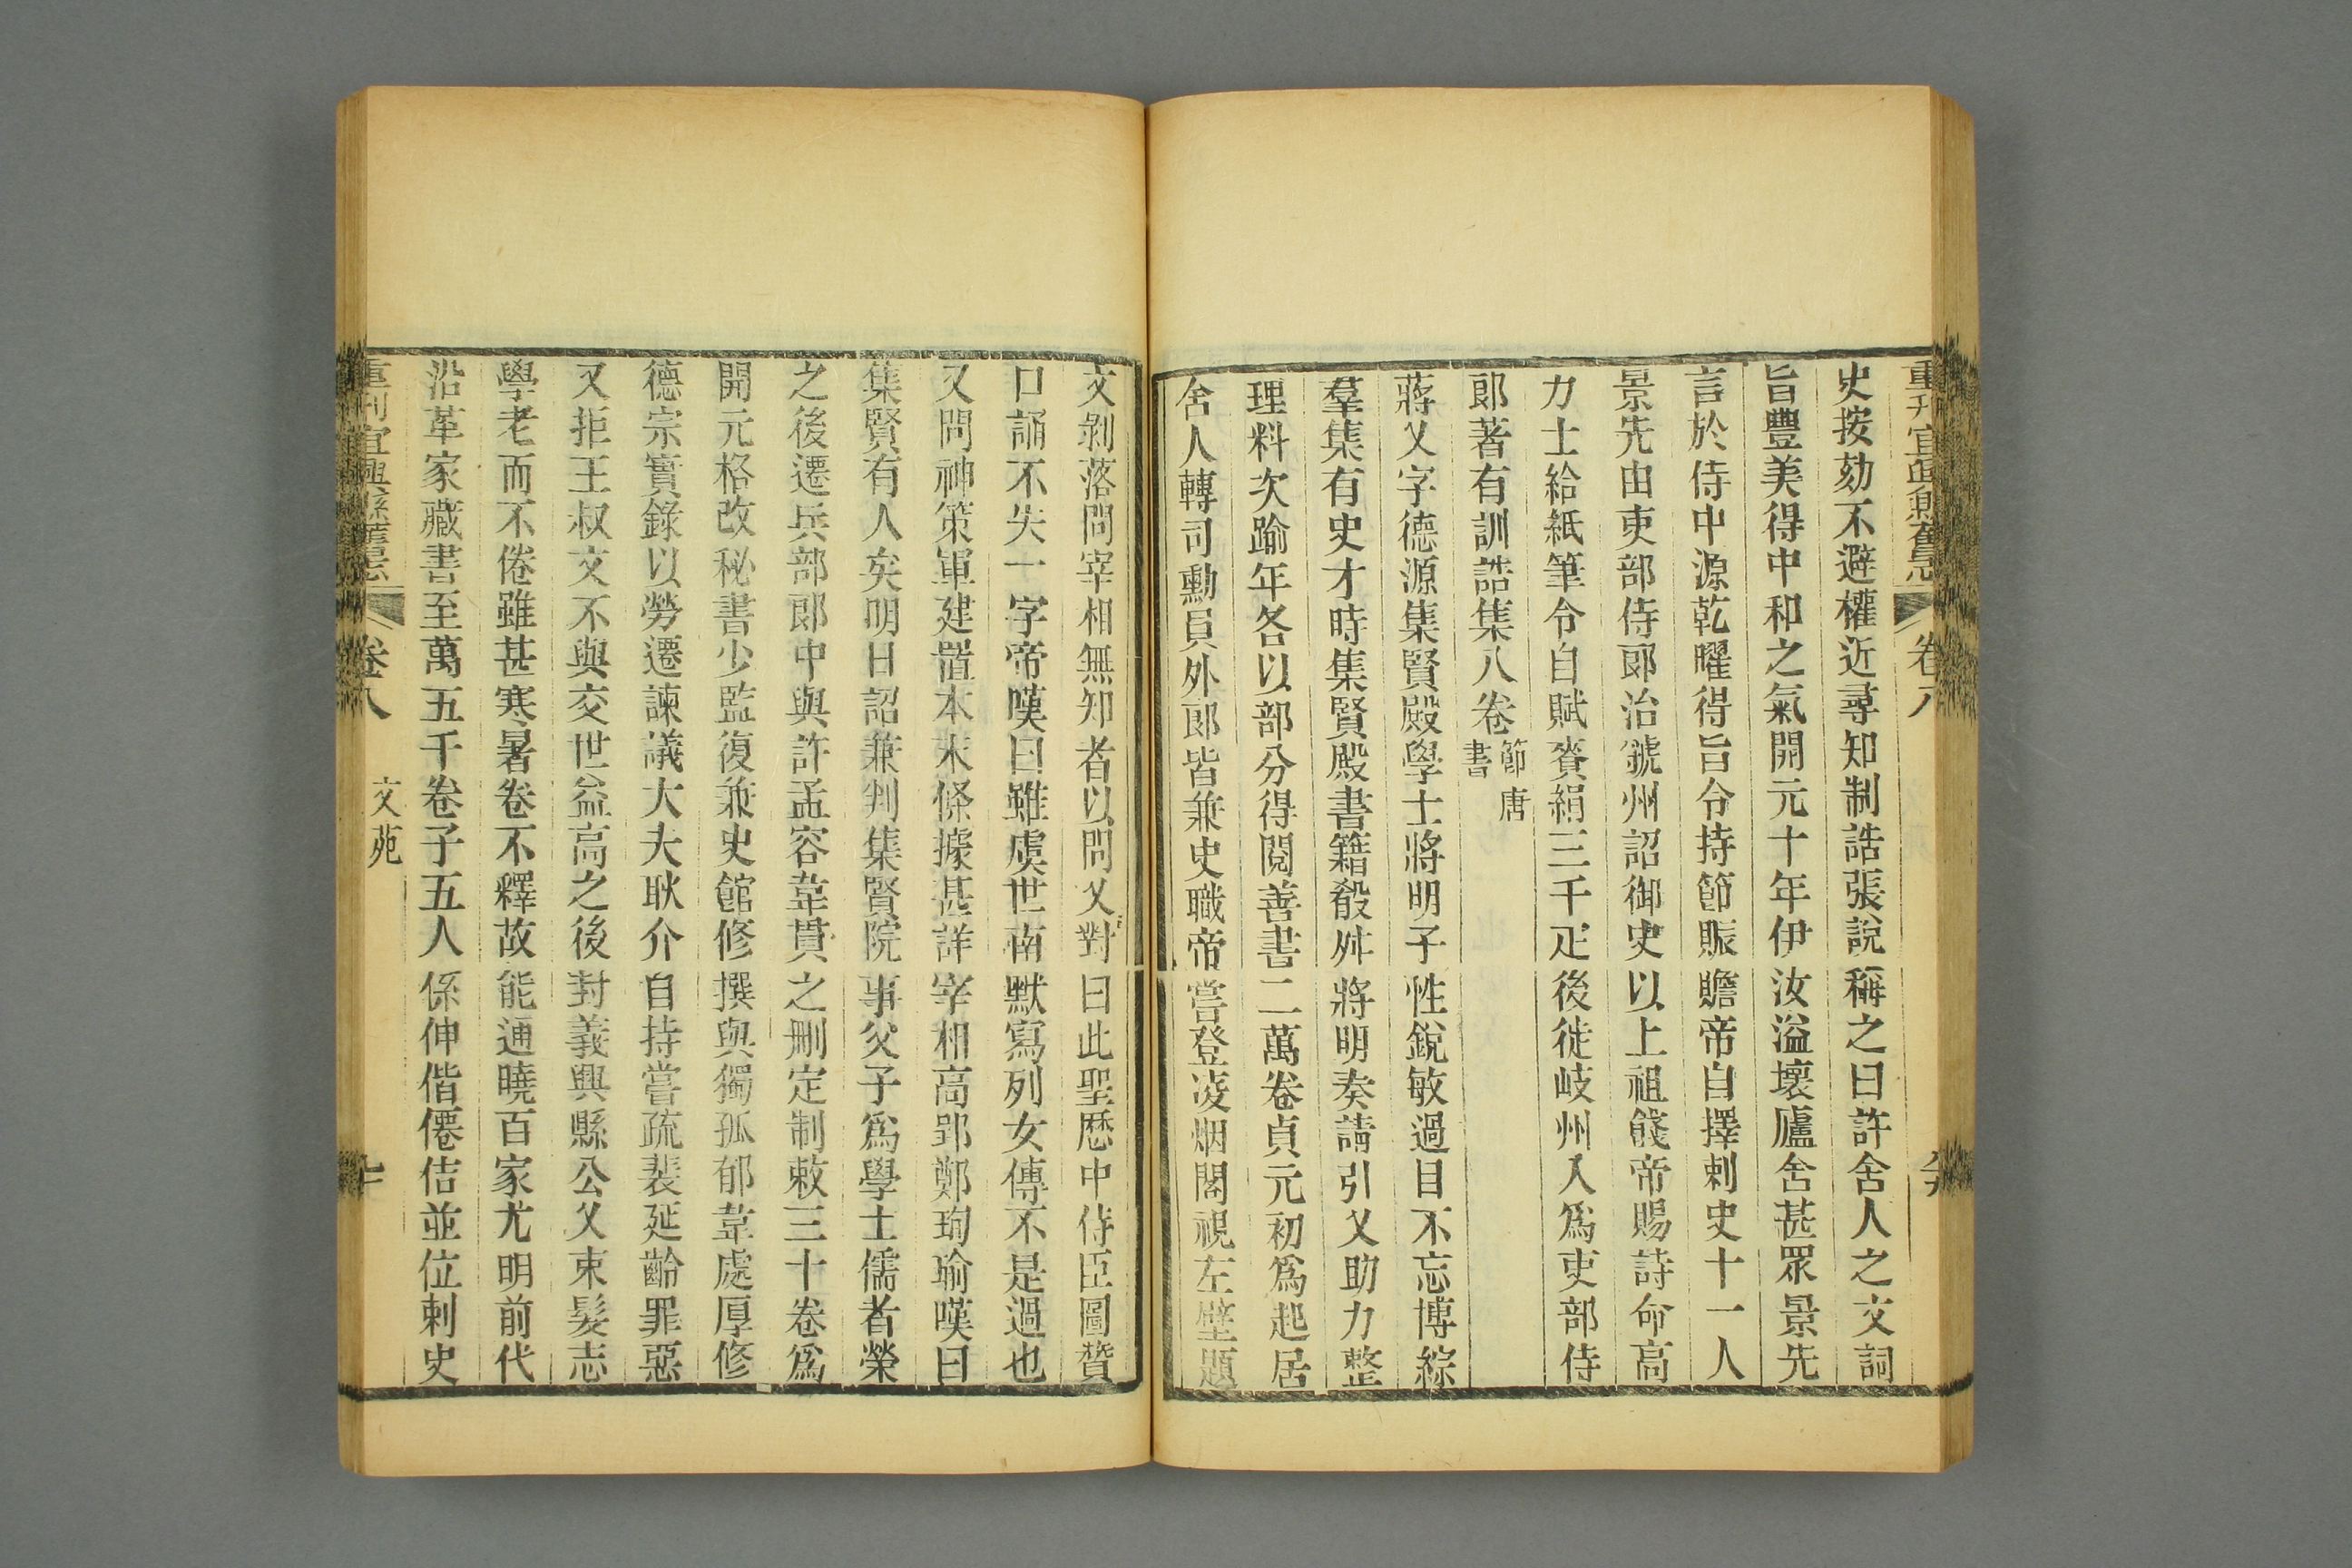 重刊宜興縣舊志 卷八
史按劾不避權近尋知制誥張說稱之曰許舍人之文詞
旨豐美得中和之氣開元十年伊汝溢壞廬舍甚眾景先
言於侍中源乾曜得旨令持節賑贍帝自擇刺史十一人
景先由吏部侍郎治虢州詔御史以上祖餞帝賜詩命高
力士給紙筆令自賦賚絹三千疋後徙岐州入為吏部侍
郎著有訓誥集八卷節唐書
蔣乂字德源集賢殿學士將明子性銳敏過目不忘博綜
羣集有史才時集賢殿書籍殽舛將明奏請引乂助力整
理料次踰年各以部分得閱善書二萬卷貞元初為起居
舍人轉司勳員外郎皆兼史職帝嘗登凌烟閣視左壁題
文剝落問宰相無知者以問乂對曰此聖歷中侍臣圖贊
口誦不失一字帝嘆曰雖虞世南默寫列女傳不是過也
又問神策軍建置本末條據甚詳宰相高郢鄭珣瑜嘆曰
集賢有人矣明日詔兼判集賢院事父子為學士儒者榮
之後遷兵部郎中與許孟容韋貫之刪定制敕三十卷為
開元格改秘書少監復兼史館修撰與獨孤郁韋處厚修
德宗實錄以勞遷諫議大夫耿介自持嘗疏裴延齡罪惡
又拒王叔文不與交世益高之後封義興縣公乂束髮志
學老而不倦雖甚寒暑卷不釋故能通曉百家尤明前代
沿革家藏書至萬五千卷子五人係伸偕僊佶並位刺史
重刊宜興縣舊志 卷八 文苑